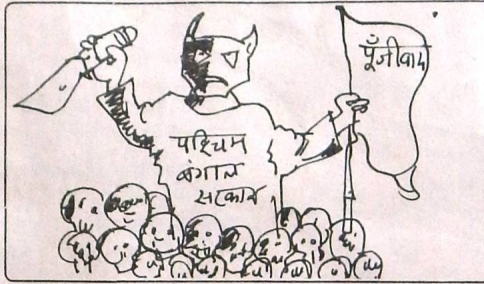 पूँजीवाद
पश्चिम
बंगाल
सरकार